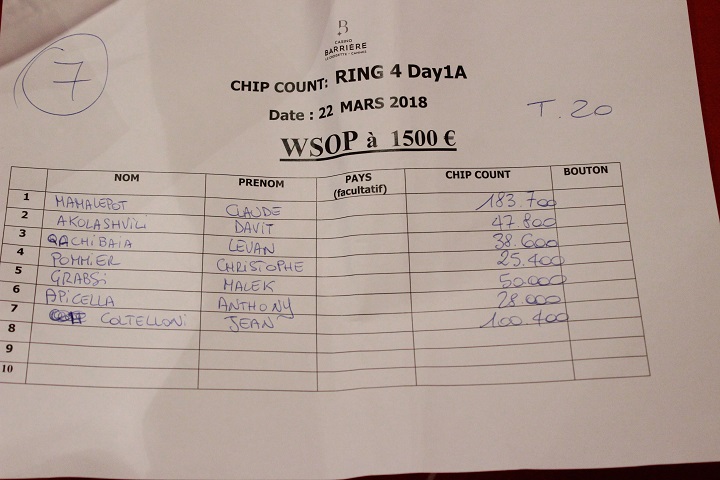 7
B
CASINO
BARRIÈRE
LE CROISETTE - CANNES
CHIP COUNT: RING 4 Day1A
Date : 22 MARS 2018
T. 20
WSOP à 1500 €
NOM PRENOM PAYS (facultatif) CHIP COUNT BOUTON
1 MAMALEPOT CLAUDE 183.700
2 AKOLASHVILI DAVIT 47.800
3 QACHIBAIA LEVAN 38.600
4 POMMIER CHRISTOPHE 25.400
5 GRABSI MALEK 50.000
6 APICELLA ANTHONY 28.000
7 COLTELLONI JEAN 100.400
8
9
10